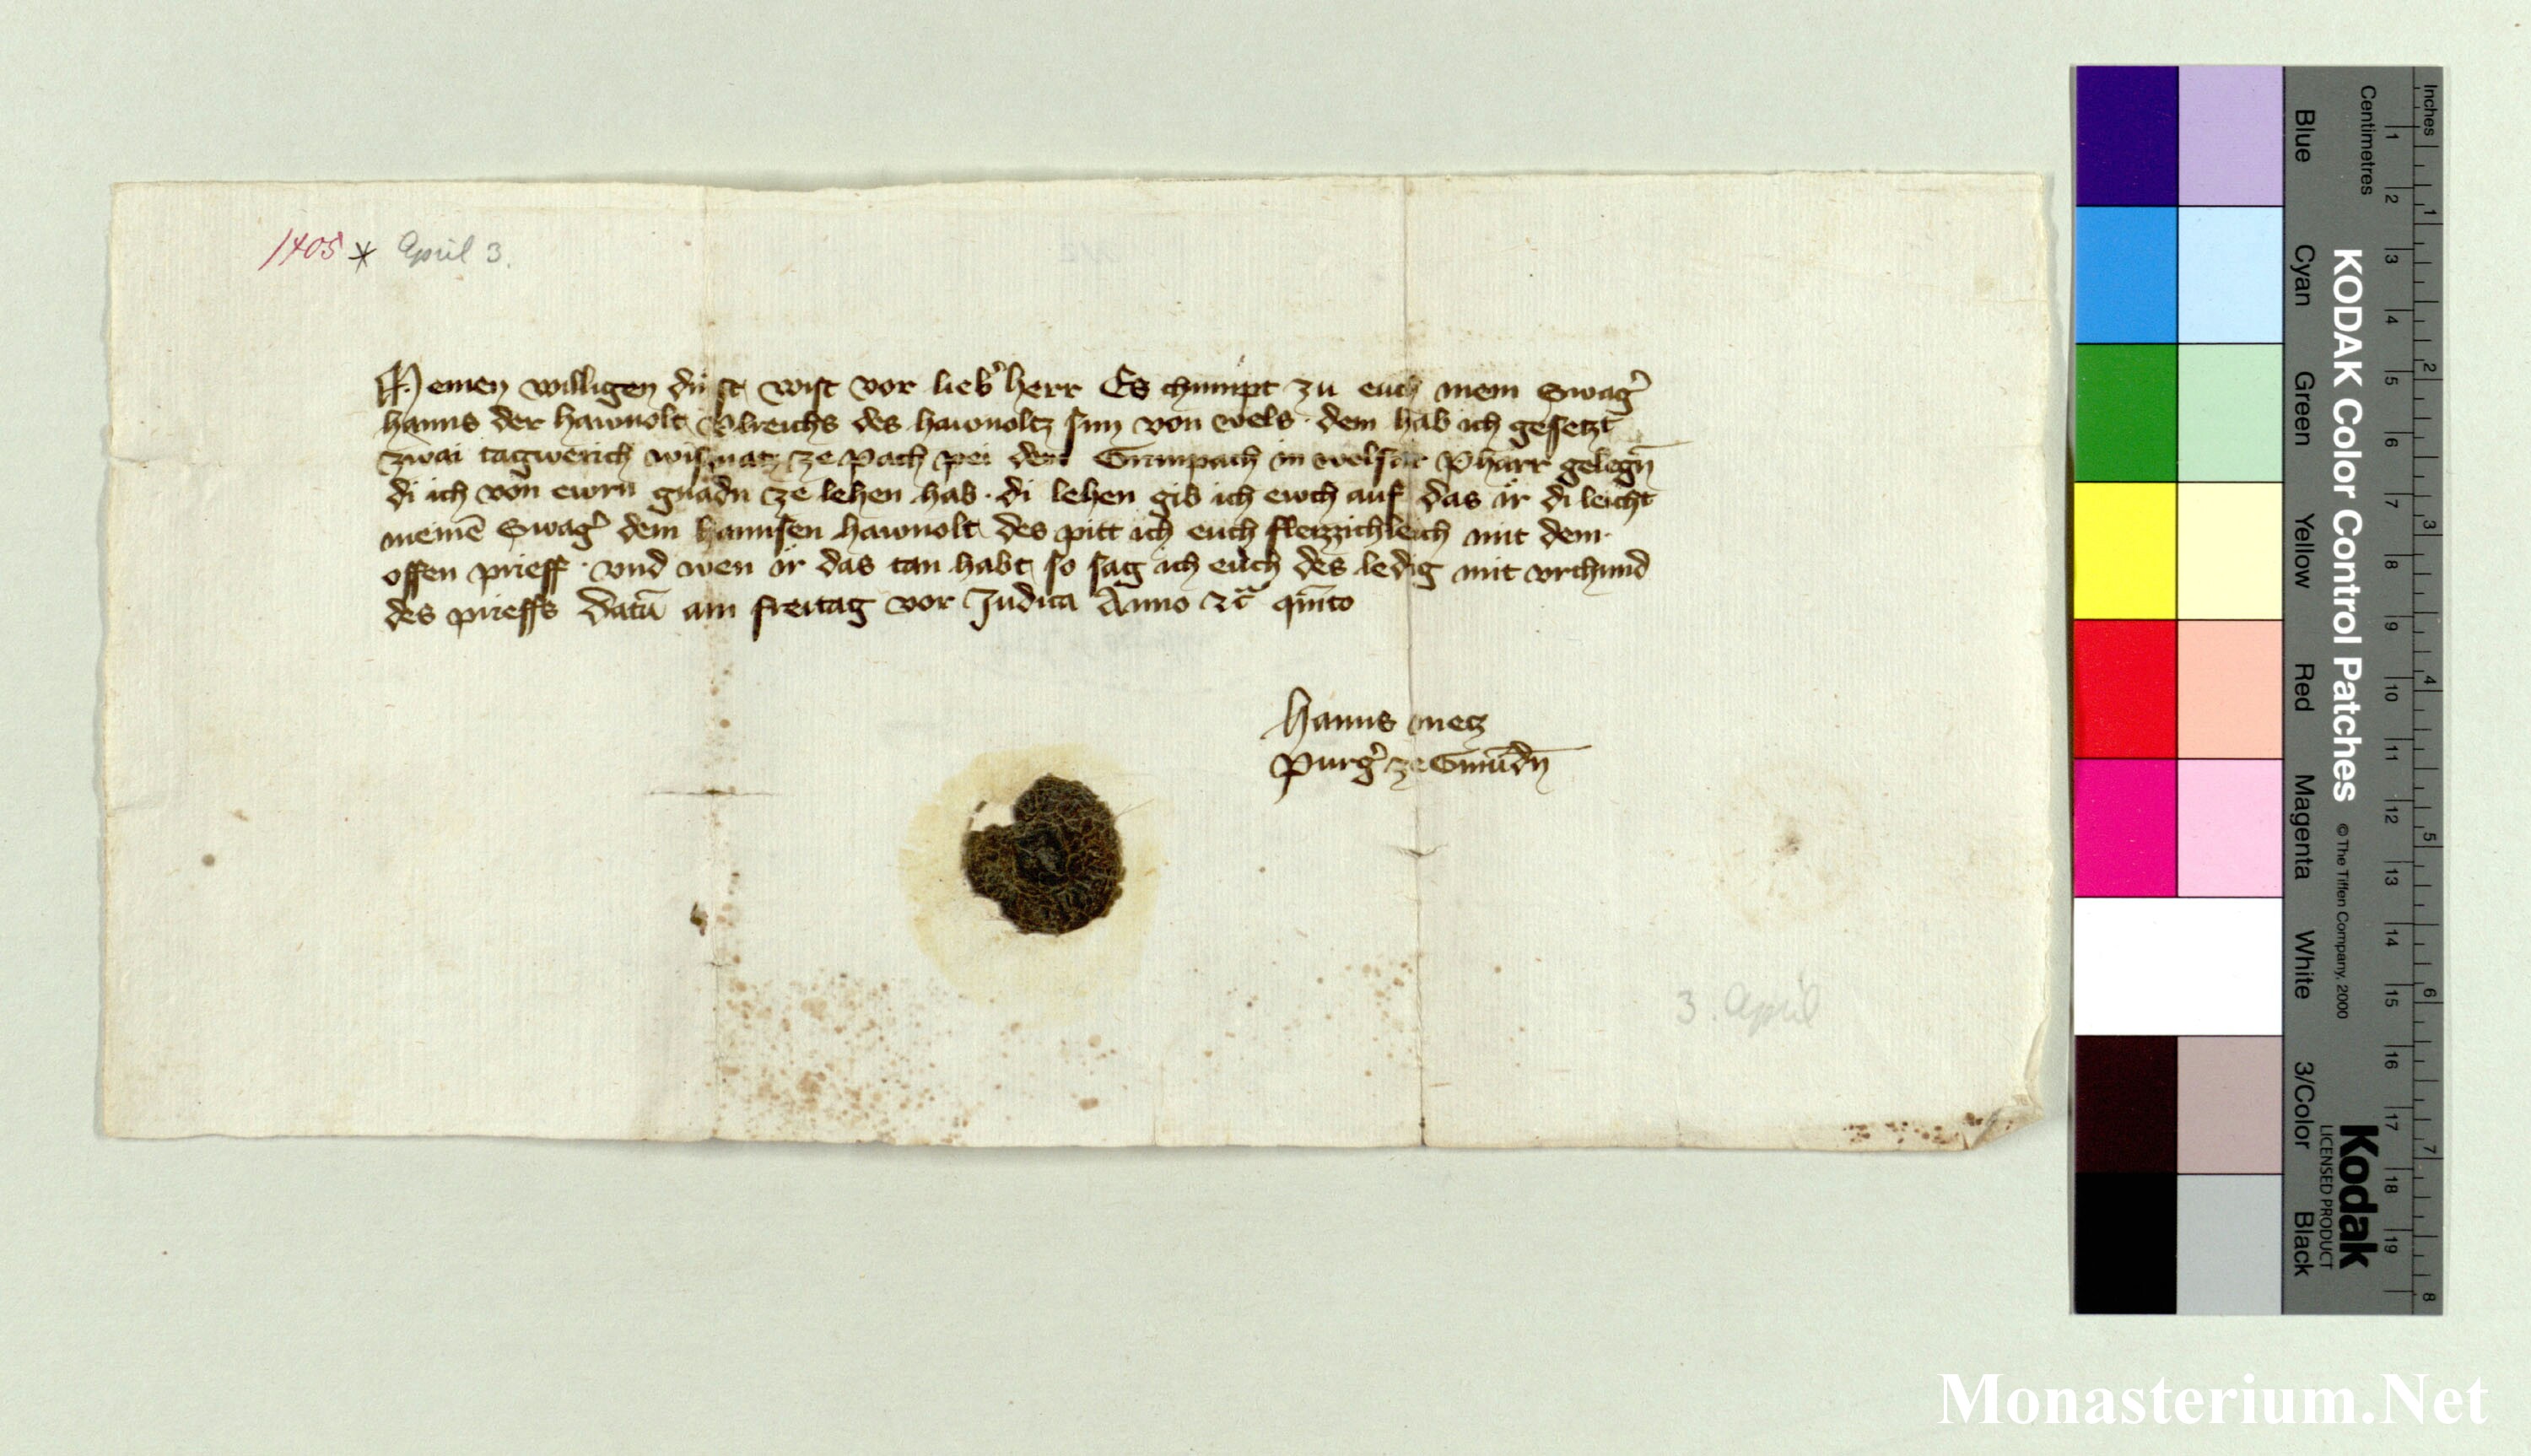 1405 * April 3.
Meinen willigen dinst wist vor lieb' herr Es chumpt zu euch mein Swag'
hanns der hawnolt Vlreichs des hawnoltz sun von wels · dem hab ich gesetzt
zwai tagwerich wismatz ze pach pei dem Grunpach in welsär pharr gelegn̄
di ich von ewrn gnadn ze lehen hab · di lehen gib ich ewch auf das ir di leicht
meinē Swag' dem hannsen hawnolt des pitt ich euch fleizzichleich mit dem
offen prieff · vnd wen ir das tan habt so sag ich euch des ledig mit vrchund
des prieffs Datū am freitag vor Judica Anno ꝛc̄ quīto
Hanns metz
Purg' ze Gmūdn̄
3. April
KODAK Color Control Patches
© The Tiffen Company, 2000
Kodak
LICENSED PRODUCT
Inches
Centimetres
1 2 3 4 5 6 7 8
1 2 3 4 5 6 7 8 9 10 11 12 13 14 15 16 17 18 19
Blue Cyan Green Yellow Red Magenta White 3/Color Black
Monasterium.Net